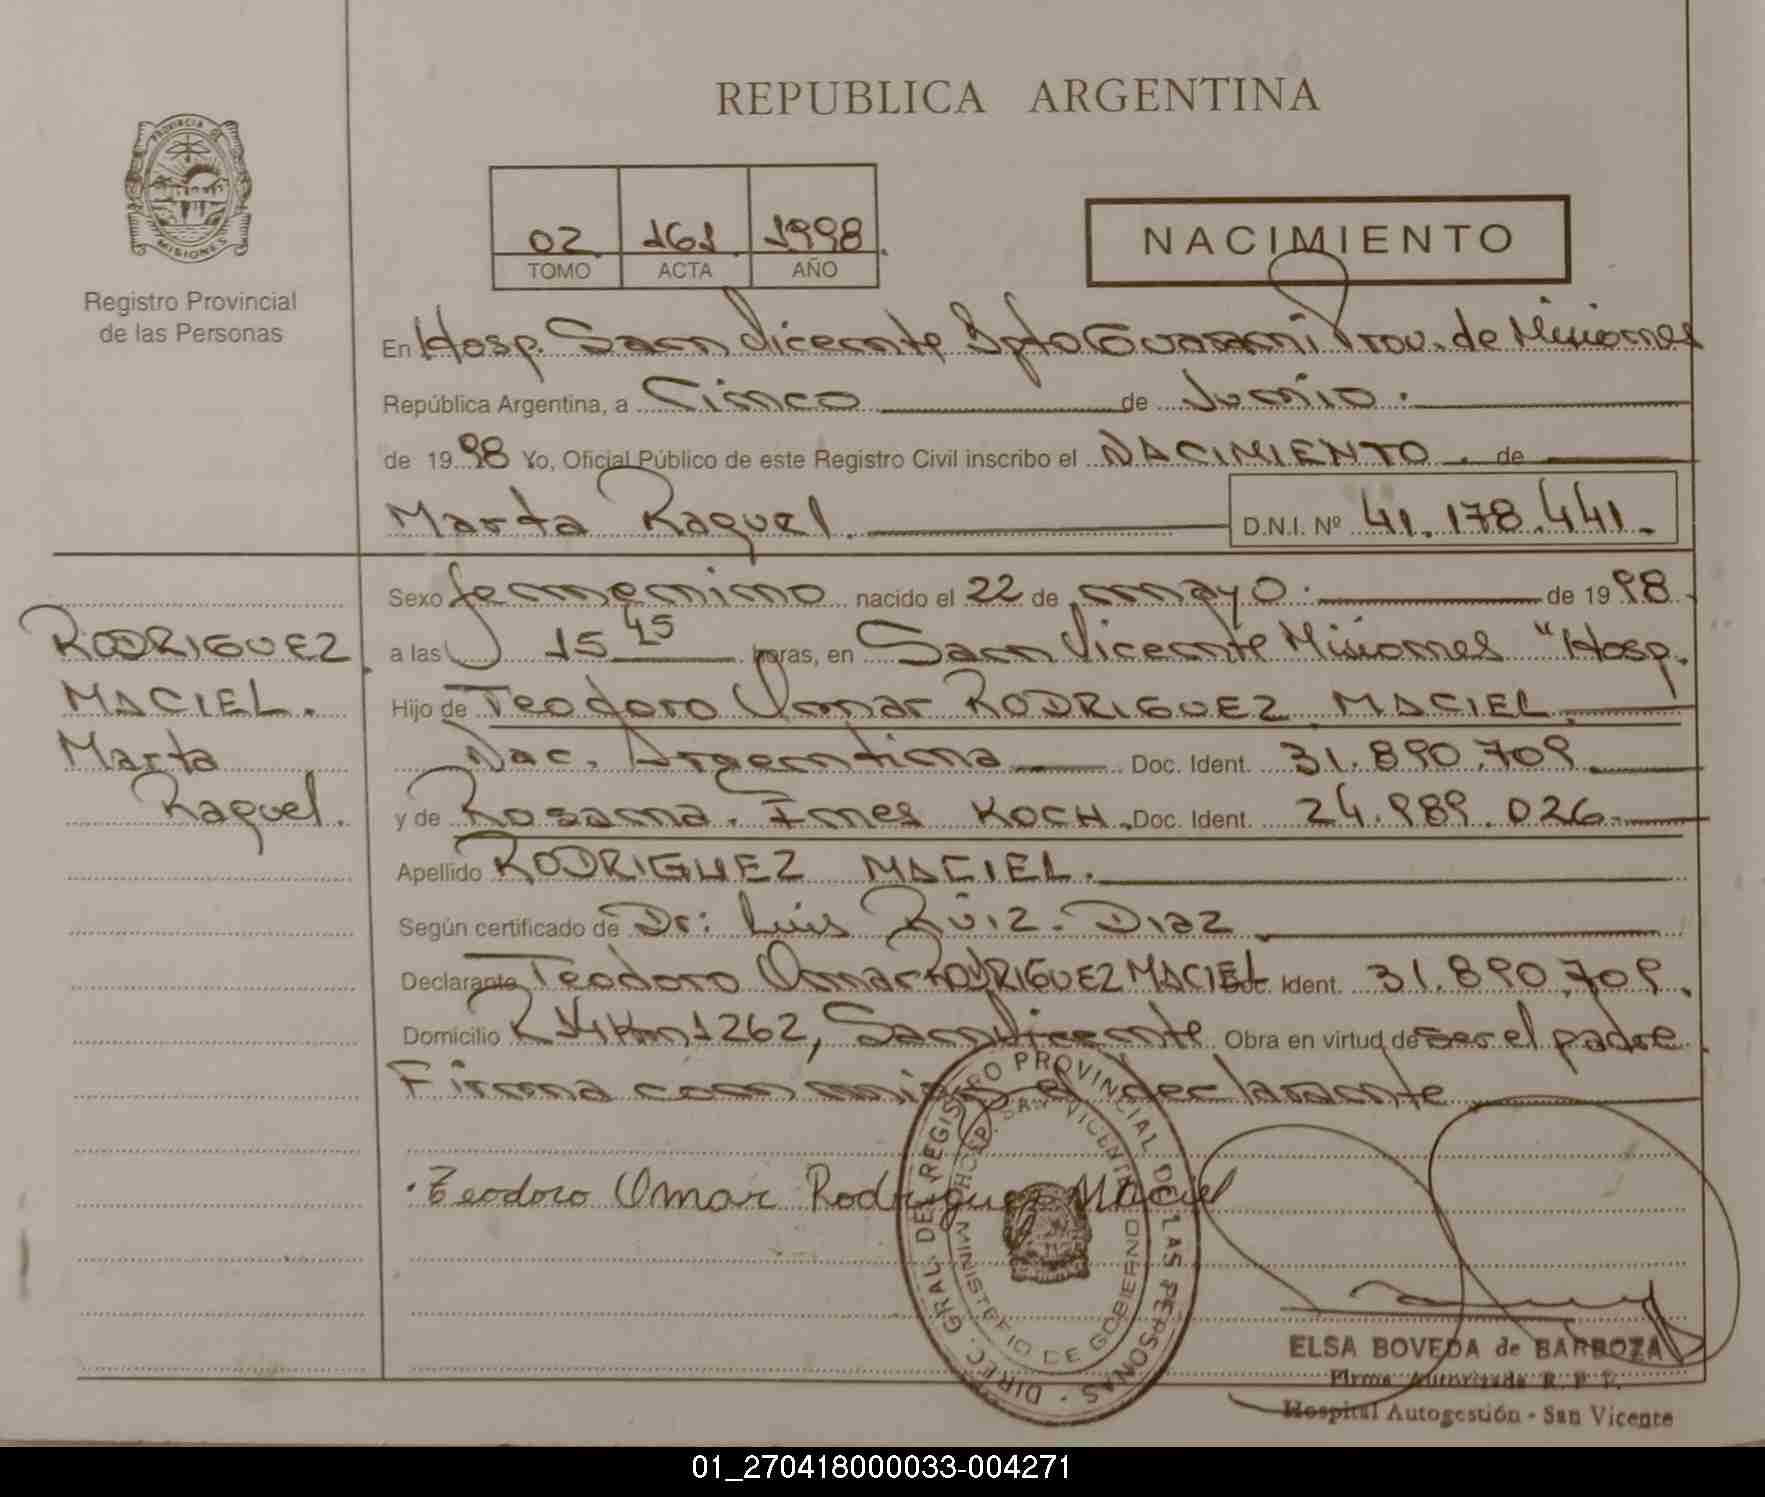 REPUBLICA ARGENTINA
PROVINCIA DE
MISIONES
Registro Provincial
de las Personas
02 161 1998
TOMO ACTA AÑO
NACIMIENTO
En Hosp. San Vicente Dpto Guarani Prov. de Misiones
República Argentina, a Cinco de Junio.
de 1998 Yo, Oficial Público de este Registro Civil inscribo el NACIMIENTO de
Marta Raquel. D.N.I. Nº 41.178.441.
Sexo femenino nacido el 22 de mayo. de 1998
a las 15 45 horas, en San Vicente Misiones "Hosp.
Hijo de Teodoro Omar RODRIGUEZ MACIEL.
Nac. Argentina Doc. Ident. 31.890.709
y de Rosana Ines KOCH. Doc. Ident. 24.989.026
Apellido RODRIGUEZ MACIEL.
Según certificado de Dr: Luis Rúiz Diaz
Declarante Teodoro Omar RODRIGUEZ MACIEL Doc. Ident. 31.890.709.
Domicilio R 14 Km 1262, San Vicente Obra en virtud de ser el padre
Firma conmigo el declarante
RODRIGUEZ
MACIEL.
Marta
Raquel.
Teodoro Omar Rodriguez Maciel
DIREC. GRAL. DEL REGISTRO PROVINCIAL DE LAS PERSONAS
HOSP. SAN VICENTE
MINISTERIO DE GOBIERNO
ELSA BOVEDA de BARBOZA
Firma Autorizada R. P. P.
Hospital Autogestión - San Vicente
01_270418000033-004271